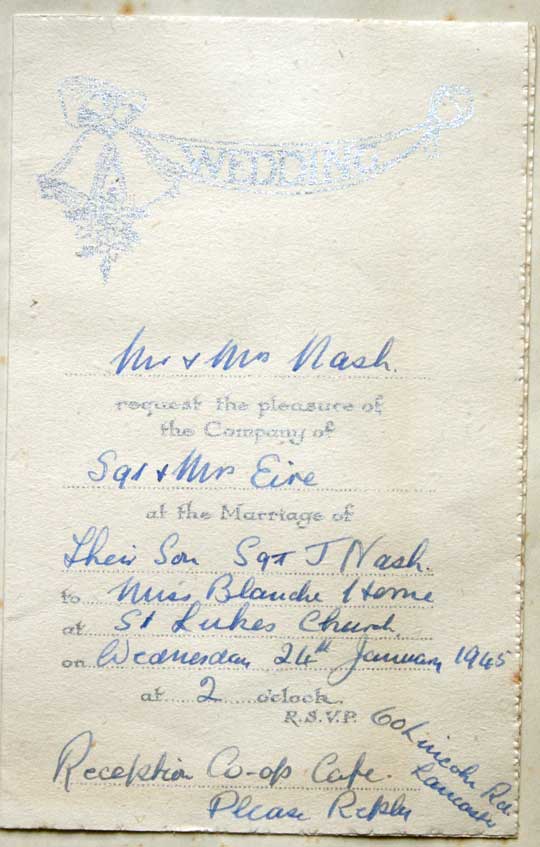 WEDDING
Mr & Mrs Nash.
request the pleasure of
the Company of
Sgt & Mrs Eire
at the Marriage of
Their Son Sgt J Nash.
to Miss Blanche Horne
at St Lukes Church.
on Wednesday 24th January 1945
at 2 o'clock.
R.S.V.P. 60 Lincoln Rd.
Lancaster
Reception Co-op Cafe.
Please Reply